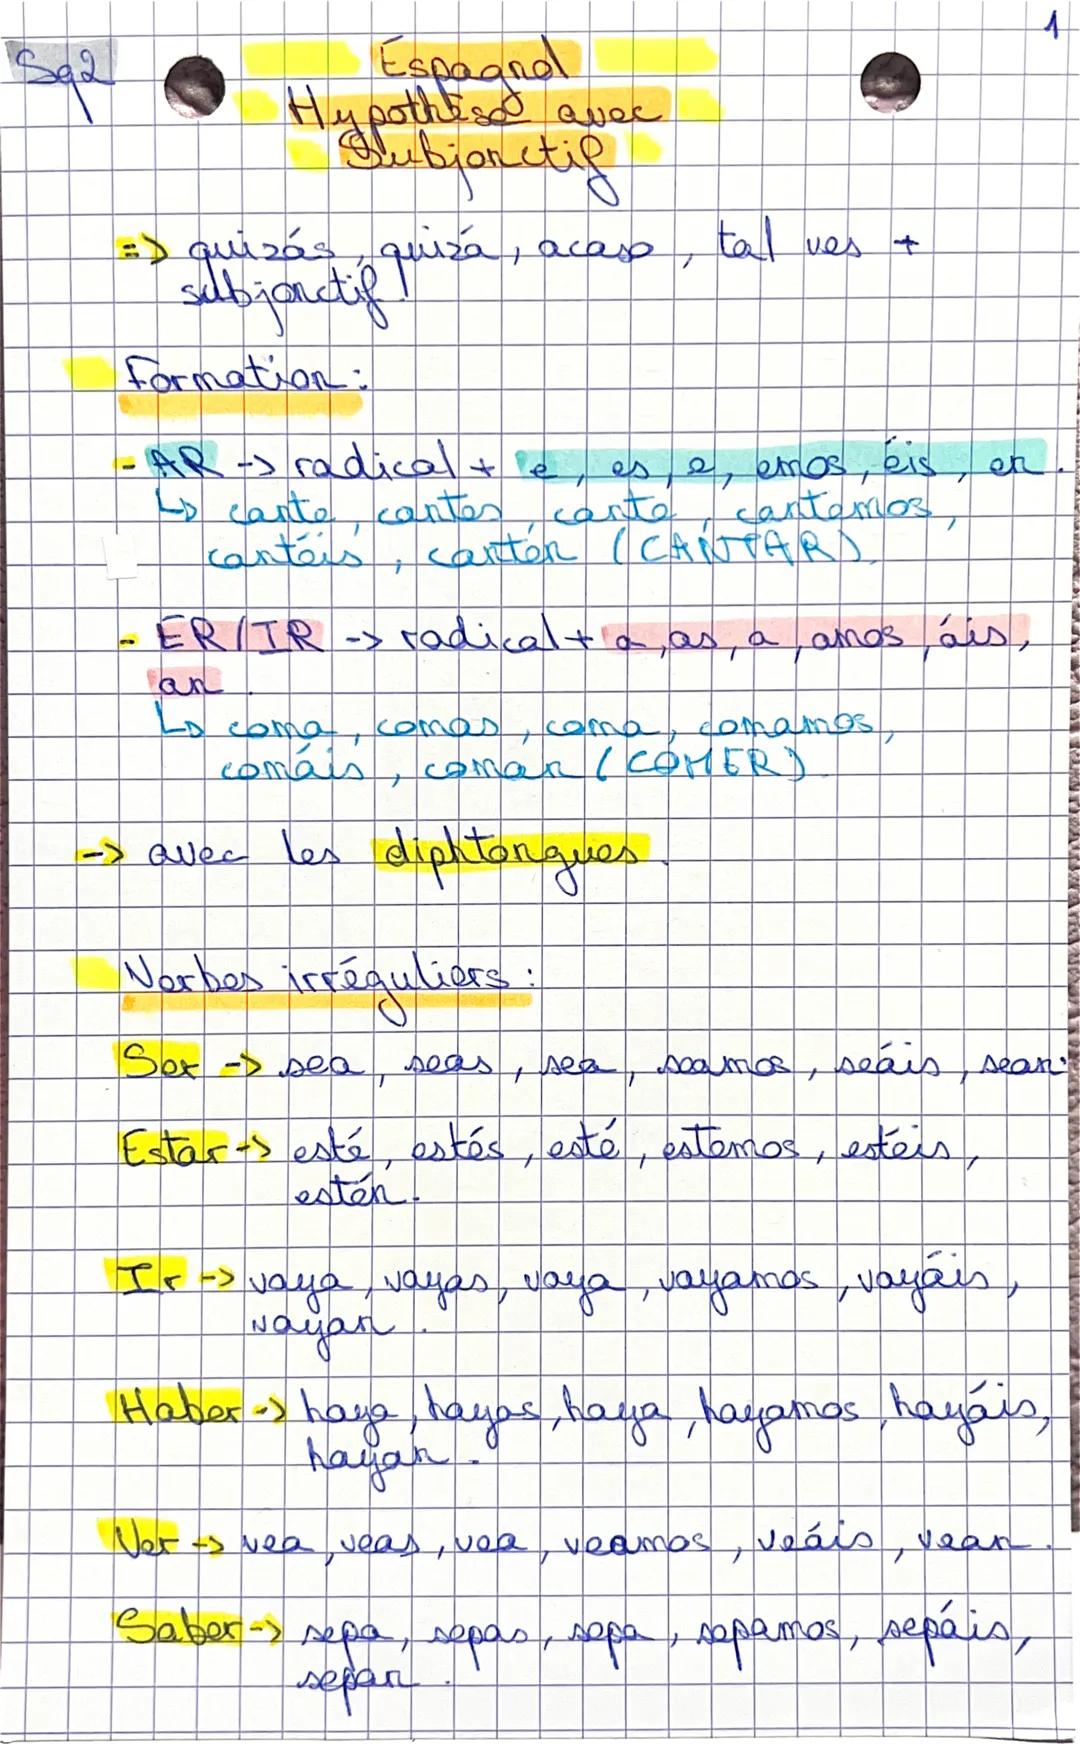 1
Sq2
Espagnol
Hypothèse avec
Subjonctif
=> quizás, quizá, acaso, tal ves +
subjonctif !
Formation :
- AR -> radical + e, es, e, emos, éis, en.
↳ cante, cantes, cante, cantemos,
cantéis, canten (CANTAR).
- ER/IR -> radical + a, as, a, amos, áis,
an.
↳ coma, comas, coma, comamos,
comáis, coman (COMER).
-> avec les diphtongues.
Verbes irréguliers :
Ser -> sea, seas, sea, seamos, seáis, sean.
Estar -> esté, estés, esté, estemos, estéis,
estén.
Ir -> vaya, vayas, vaya, vayamos, vayáis,
vayan.
Haber -> haya, hayas, haya, hayamos, hayáis,
hayan.
Ver -> vea, veas, vea, veamos, veáis, vean.
Saber -> sepa, sepas, sepa, sepamos, sepáis,
sepan.